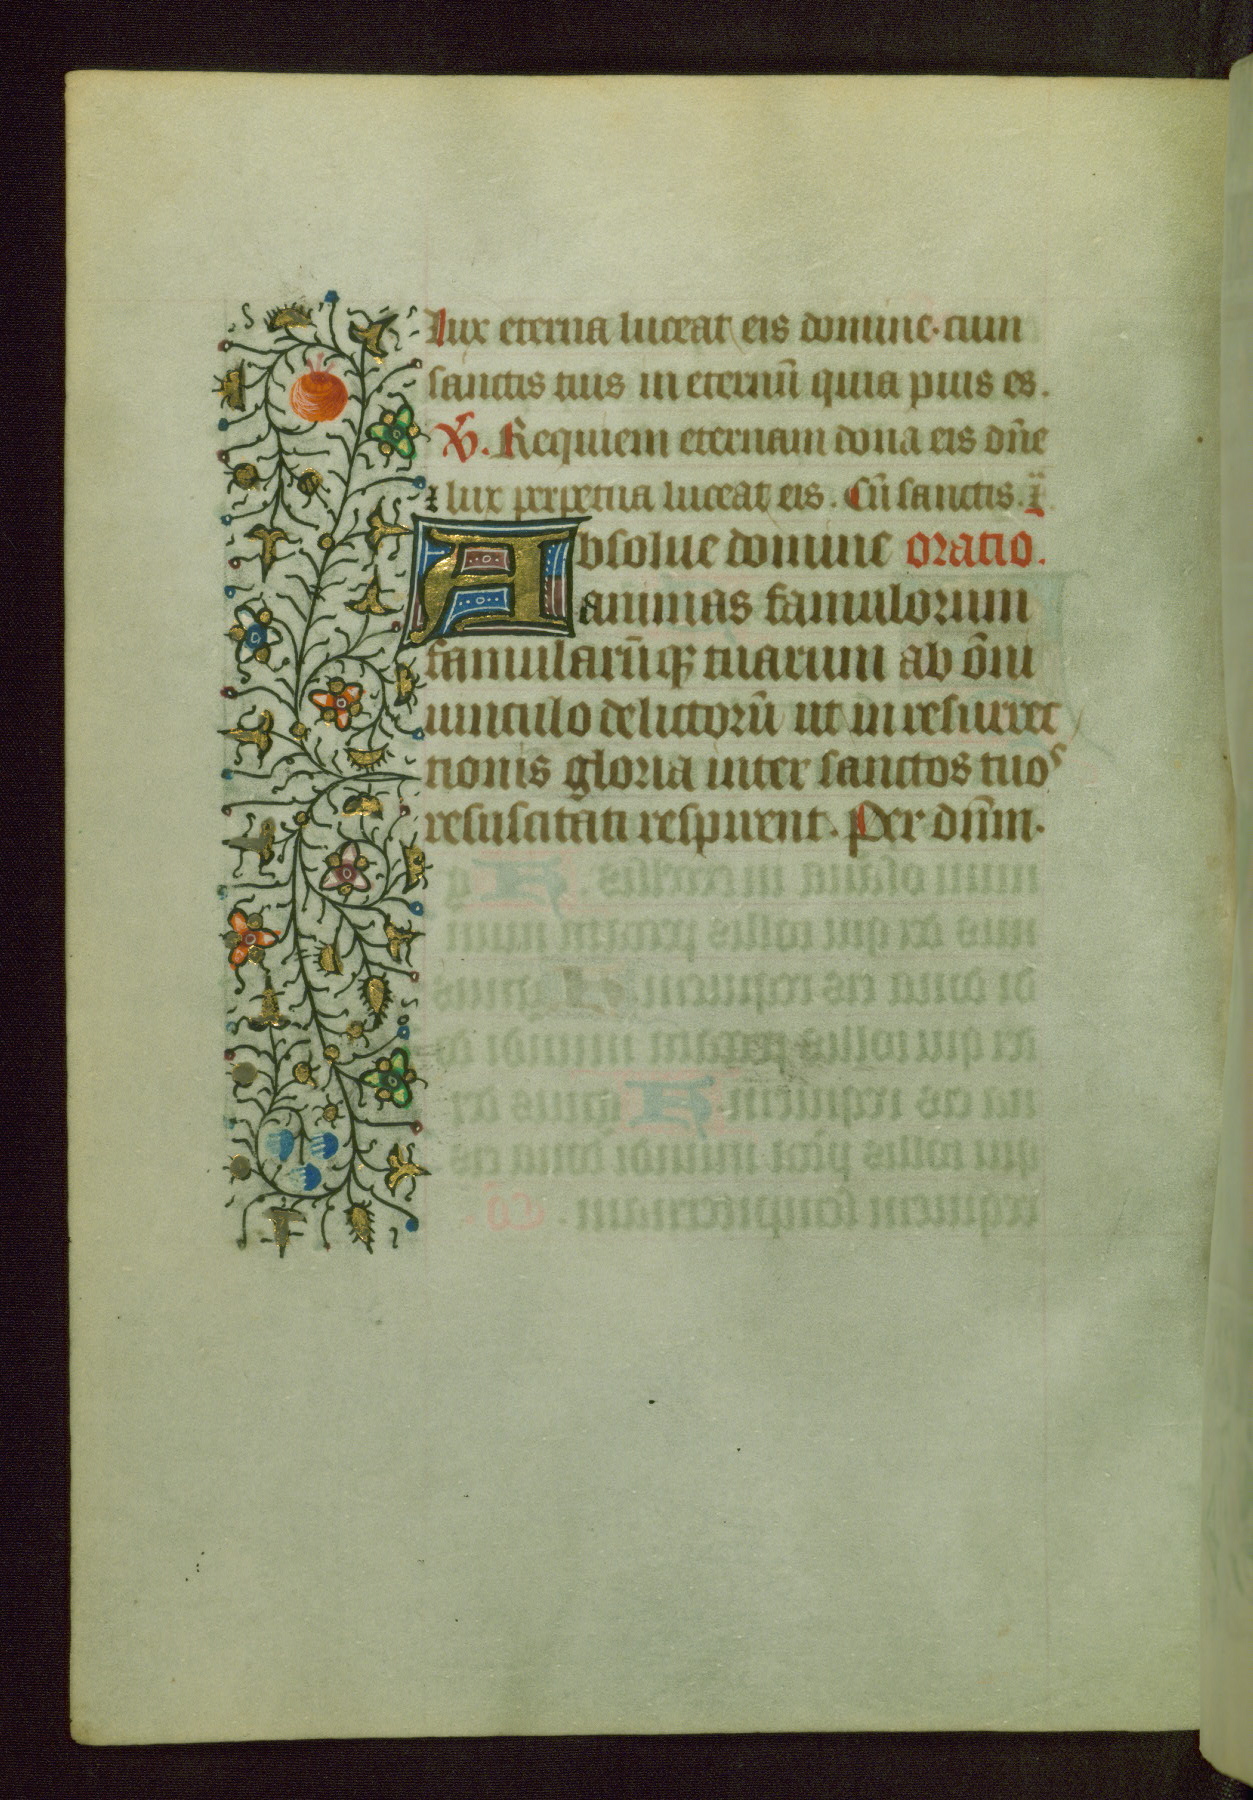 Lux eterna luceat eis domine. cum
sanctis tuis in eternū quia pius es.
V. Requiem eternam dona eis dn̄e
⁊ lux perpetua luceat eis. Cū sanctis.
Absolue domine oratio.
animas famulorum
famularūqꝫ tuarum ab om̄i
uinculo delictorū ut in resurrec
tionis gloria inter sanctos tuos
resuscitati respirent. Per dn̄m.